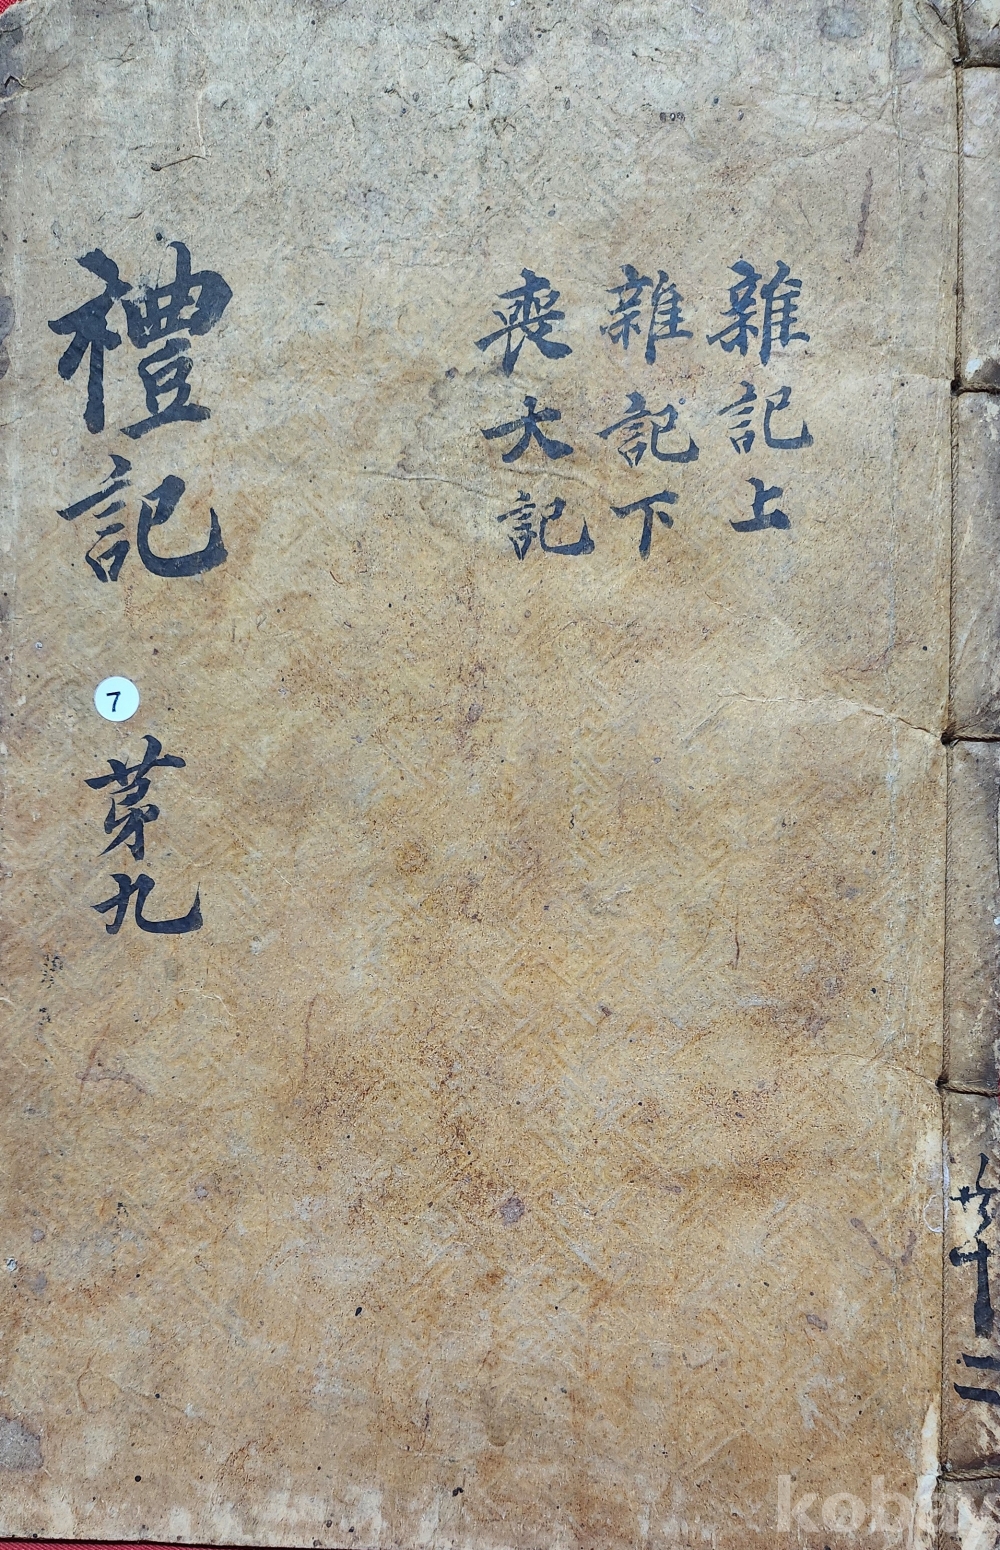 雜記上
雜記下
喪大記
禮記
7
苐九
共十二
kobay